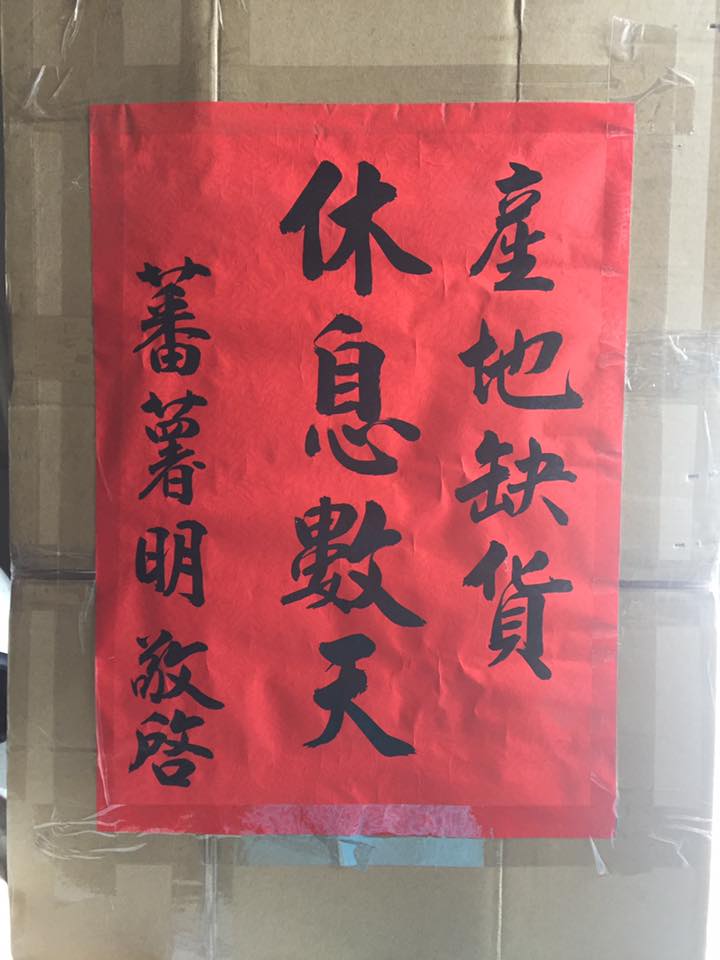 產地缺貨
休息數天
蕃薯明 敬啓